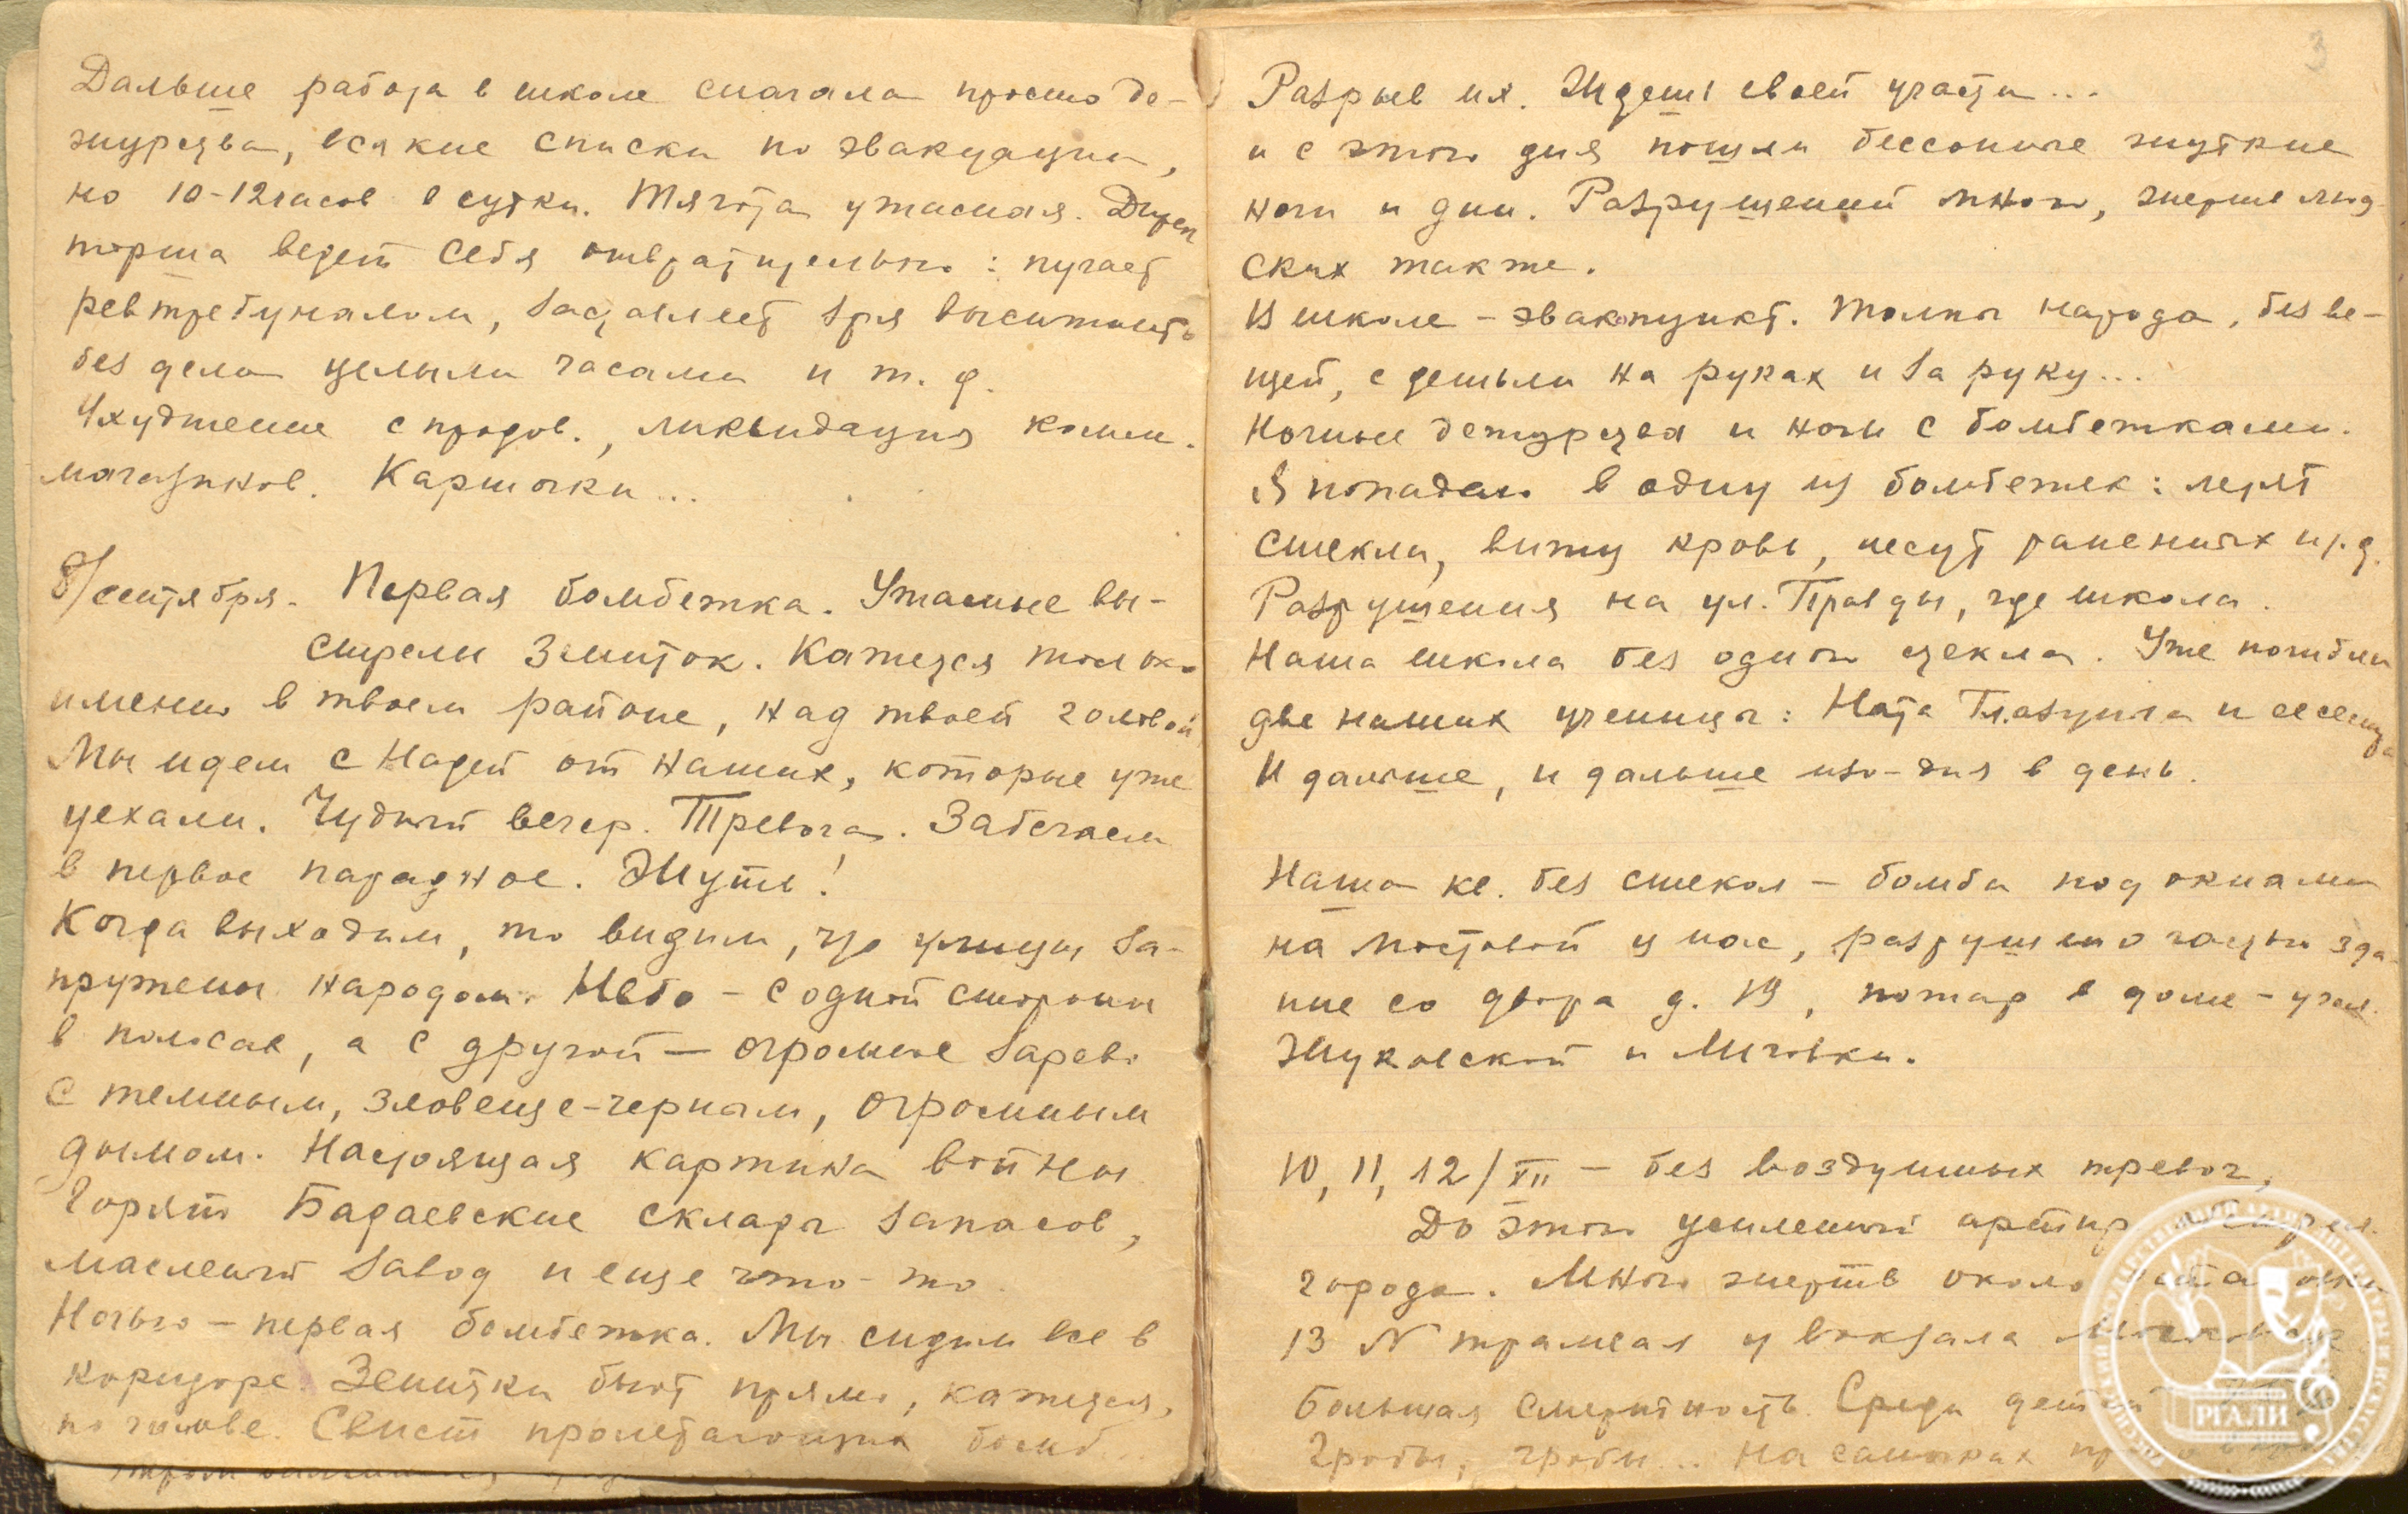 Дальше работа в школе сначала просто де-
журства, всякие списки по эвакуации,
но 10-12 часов в сутки. Тягота ужасная. Дирек
торша ведет себя отвратительно: пугает
ревтребуналом, заставляет зря высиживать
без дела целыми часами и т. д.
Ухудшение с продов., ликвидация комм.
магазинов. Карточки...
8/сентября. Первая бомбежка. Ужасные вы-
стрелы зениток. Кажется только
именно в твоем районе, над твоей головой
Мы идем с Надей от наших, которые уже
уехали. Чудный вечер. Тревога. Забегаем
в первое парадное. Жуть!
Когда выходим, то видим, что улицы за-
пружены народом. Небо - с одной стороны
в полосах, а с другой - огромное зарево
с темным, зловеще-черным, огромным
дымом. Настоящая картина войны.
Горят Бадаевские склады запасов,
масленый завод и еще что-то.
Ночью - первая бомбежка. Мы сидим все в
коридоре. Зенитки бьют прямо, кажется,
по голове. Свист пролетающих бомб...
3
Разрыв их. Ждешь своей участи...
и с этого дня пошли бессонные жуткие
ночи и дни. Разрушений много, жертв люд
ских также.
В школе - эвакопункт. Толпы народа, без ве-
щей, с детьми на руках и за руку...
Ночные дежурства и ночи с бомбежками.
Я попадаю в одну из бомбежек: летят
стекла, вижу кровь, несут раненых и т. д.
Разрушения на ул. Правды, где школа.
Наша школа без одного стекла. Уже погибли
две наших ученицы: Ната Глазунова и ее сестра
И дальше, и дальше изо-дня в день.
Наша кв. без стекол - бомба под окнами
на мостовой у нас, разрушено часть зда-
ние со двора д. 19, пожар в доме - угол
Жуковской и Лиговки.
10, 11, 12/XII - без воздушных тревог,
До этого усиленный артир
города. Много жертв около
13 N трамвая у вокзала
Большая смертность. Среди детей
Гробы, гробы... На саночках
РГАЛИ